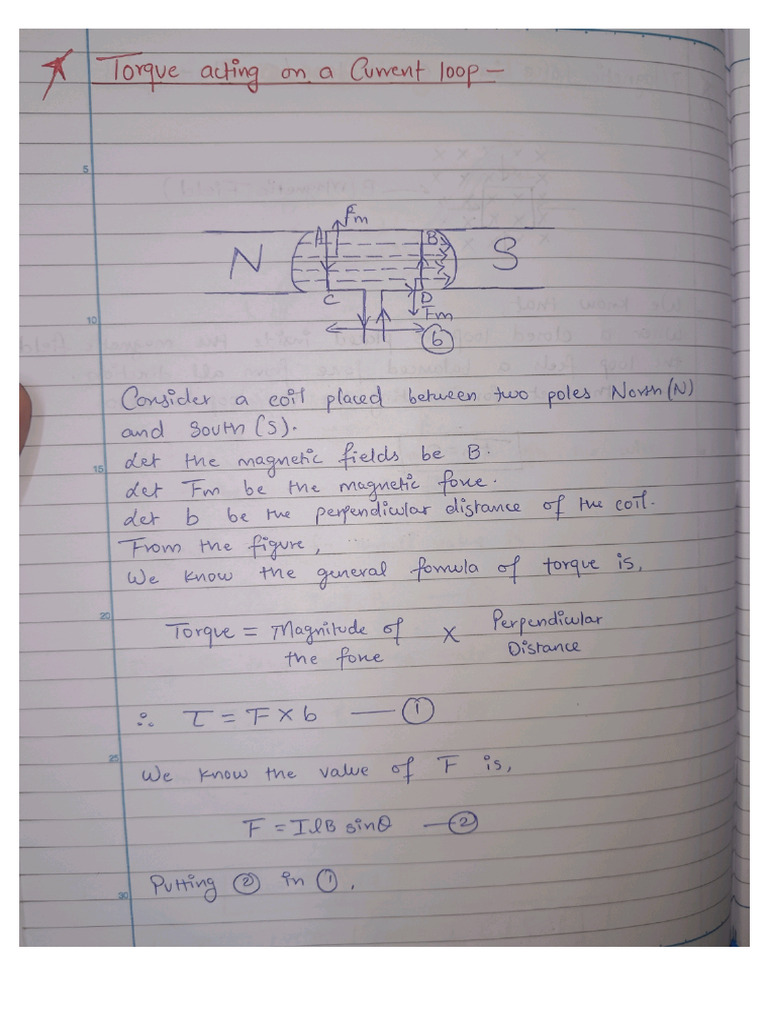 Torque acting on a Current loop -
5
Fm
A B
N S
C D
Fm
10
b
Consider a coil placed between two poles North (N)
and South (S).
Let the magnetic fields be B.
15
Let Fm be the magnetic force.
Let b be the perpendicular distance of the coil.
From the figure,
We know the general formula of torque is,
20
Torque = Magnitude of the force × Perpendicular Distance
∴ τ = F × b — ①
25
We know the value of F is,
F = IlB sinθ — ②
Putting ② in ①,
30